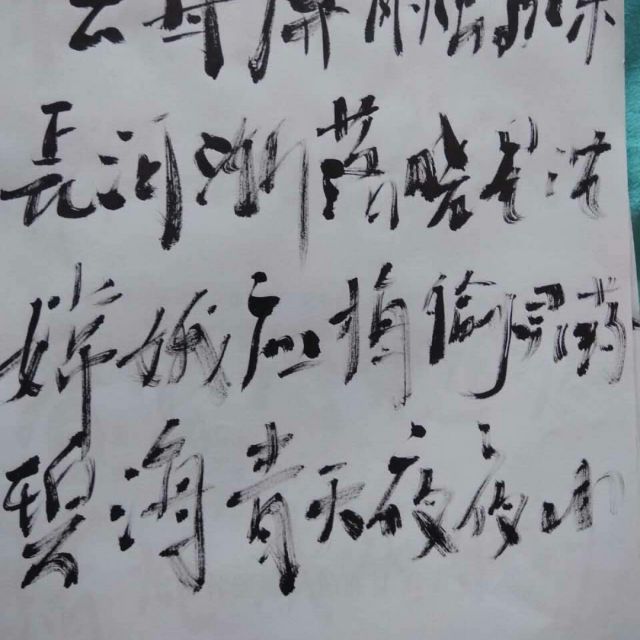 云母屏风烛影深
長河渐落晓星沉
嫦娥应悔偷灵药
碧海青天夜夜心